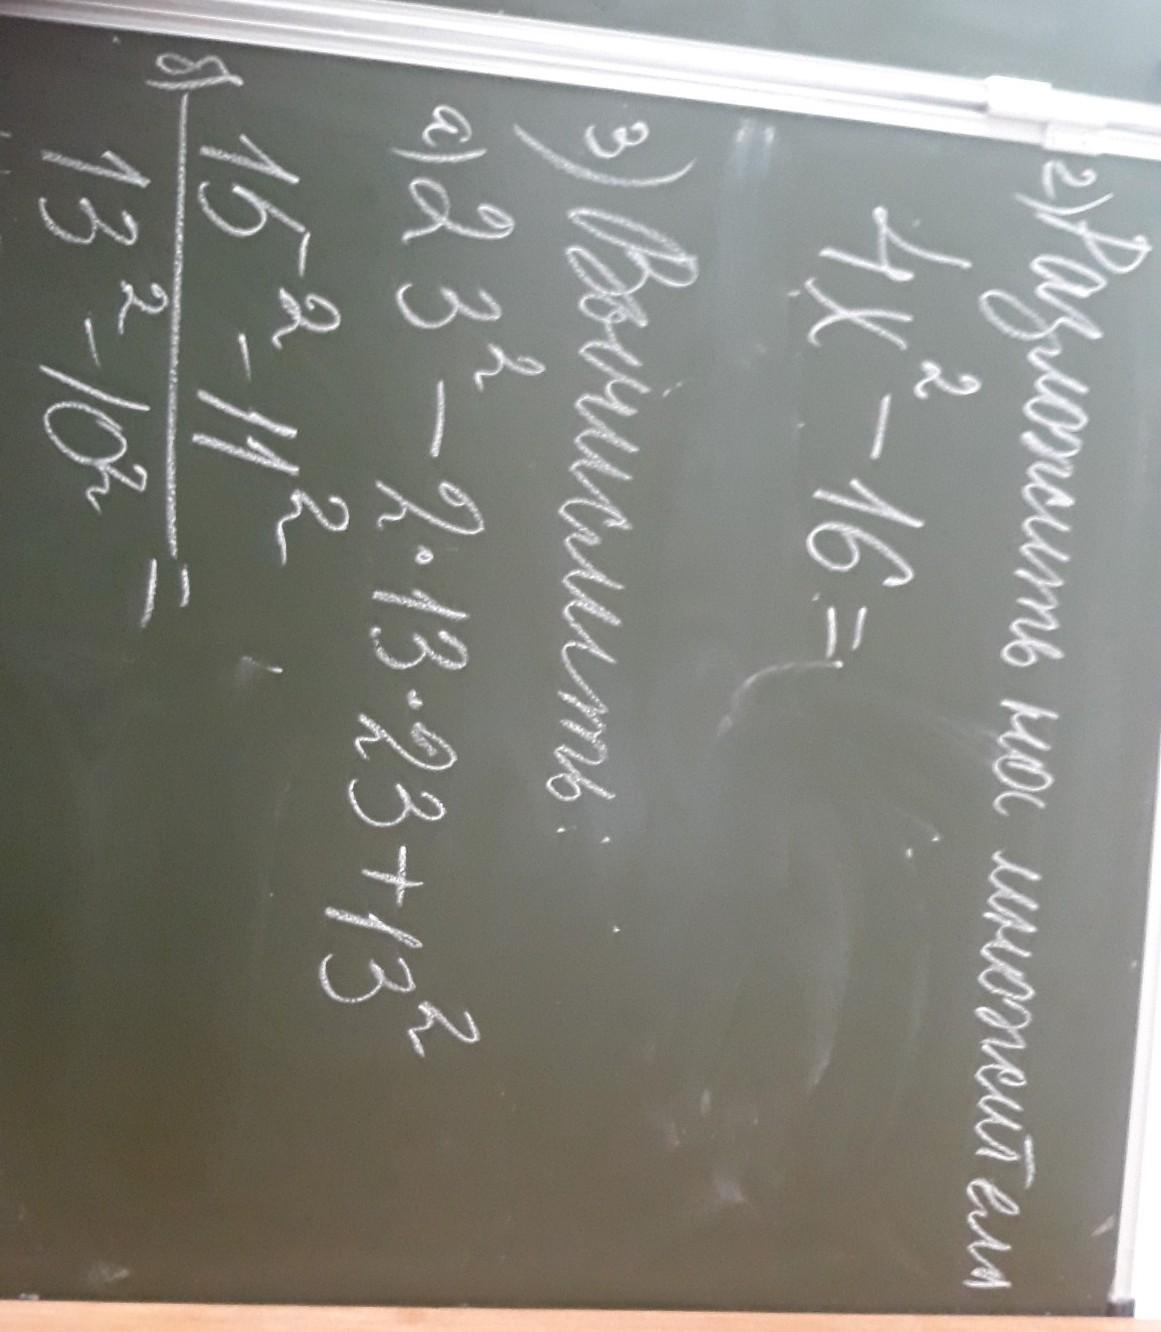 2) Разложить на множители
4x² - 16 =
3) Вычислить:
а) 23² - 2·13·23 + 13²
б) 15² - 11²
13² - 10² =